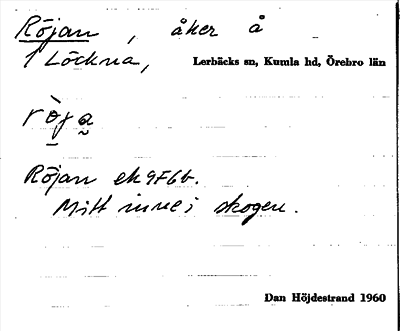 Röjan, åker å
1 Löckna, Lerbäcks sn, Kumla hd, Örebro län
ròja
Röjan ek 9F6b.
Mitt inne i skogen.
Dan Höjdestrand 1960